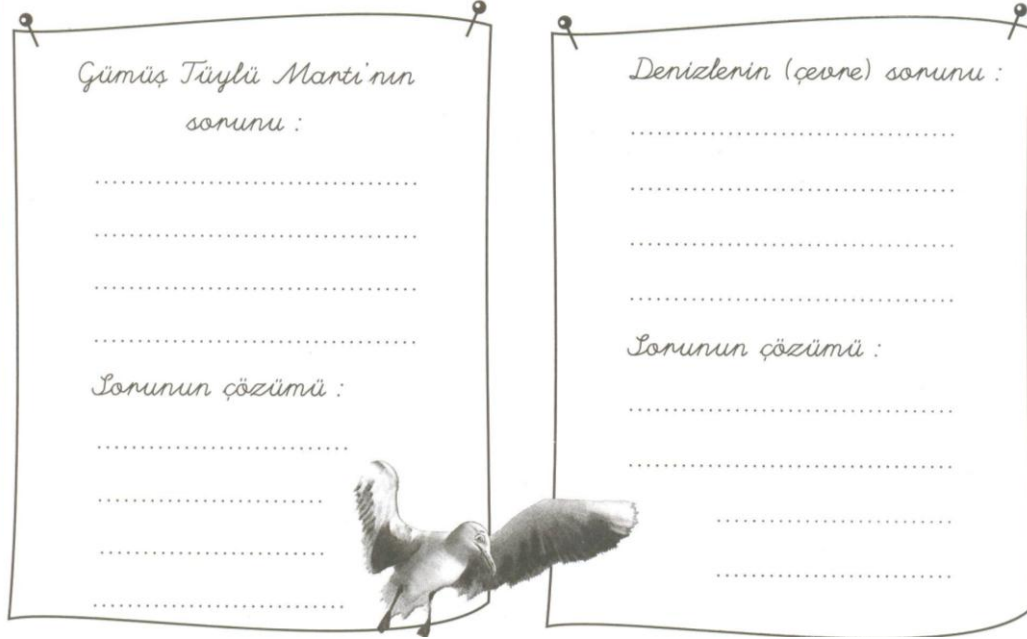 Gümüş Tüylü Martı'nın
sorunu :
Sorunun çözümü :
Denizlerin (çevre) sorunu :
Sorunun çözümü :